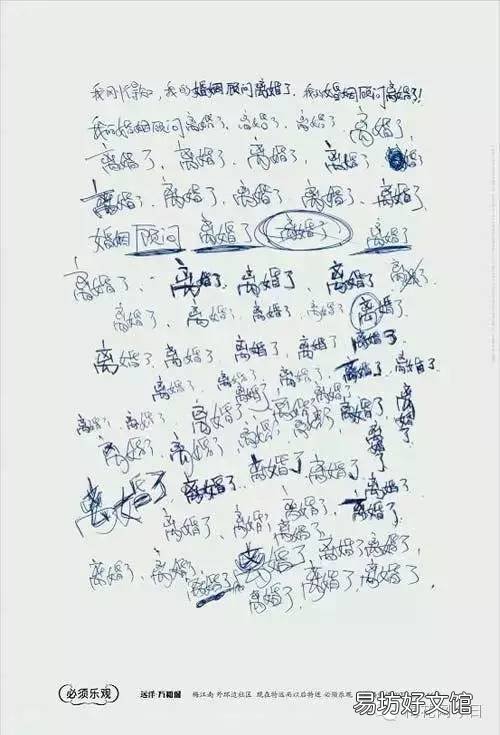 我的婚姻顾问离婚了，我的婚姻顾问离婚了！
我的婚姻顾问离婚了、离婚了、离婚了、离婚了、
离婚了、离婚了、离婚了、离婚了、离婚
离婚了、离婚了、离婚了、离婚了、离婚了、
婚姻顾问 离婚了 离婚了 离婚了
离婚了、离婚了、离婚了、离婚了、离婚了
离婚了、离婚了、离婚了、离婚了、离婚了、
离婚了、离婚了、离婚了、离婚了、离婚了
离婚了、离婚了、离婚了、离婚了、离婚了、
离婚了、离婚了、离婚了、离婚了、离婚了、离婚了
离婚了、离婚了、离婚了、离婚了
离婚了 离婚了、离婚了 离婚了
离婚了、离婚了、离婚了、离婚了、离婚了、
离婚了、离婚了、离婚了、离婚了、离婚了、
离婚了、离婚了、离婚了、离婚了、
必须乐观
远洋·万和城 梅江南 外环边社区 现在特远而以后特近 必须乐观
易坊好文馆